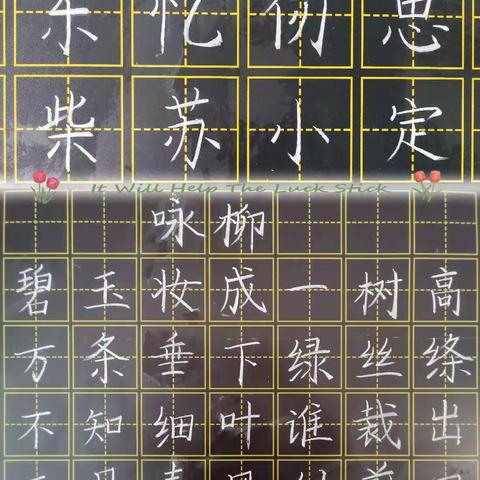 忆 思
柴 苏 小 定
It Will Help The Luck Stick
咏柳
碧玉妆成一树高
万条垂下绿丝绦
不知细叶谁裁出